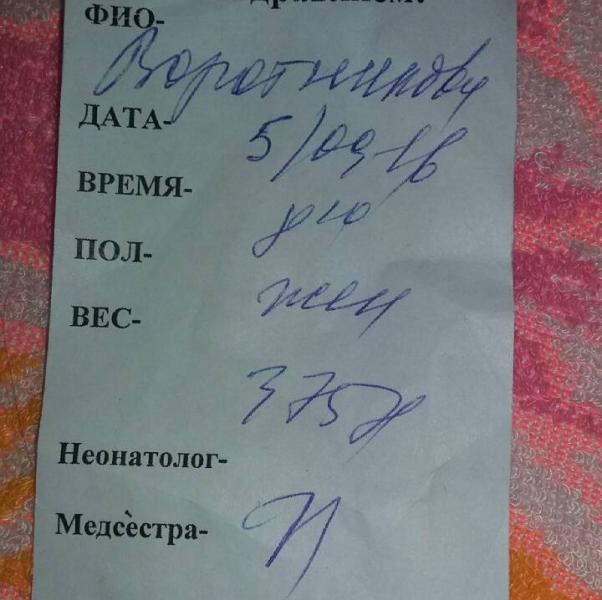 ФИО-
Воротникова
ДАТА-
5/09-16
ВРЕМЯ-
ПОЛ-
жен
ВЕС-
Неонатолог-
Медсестра-